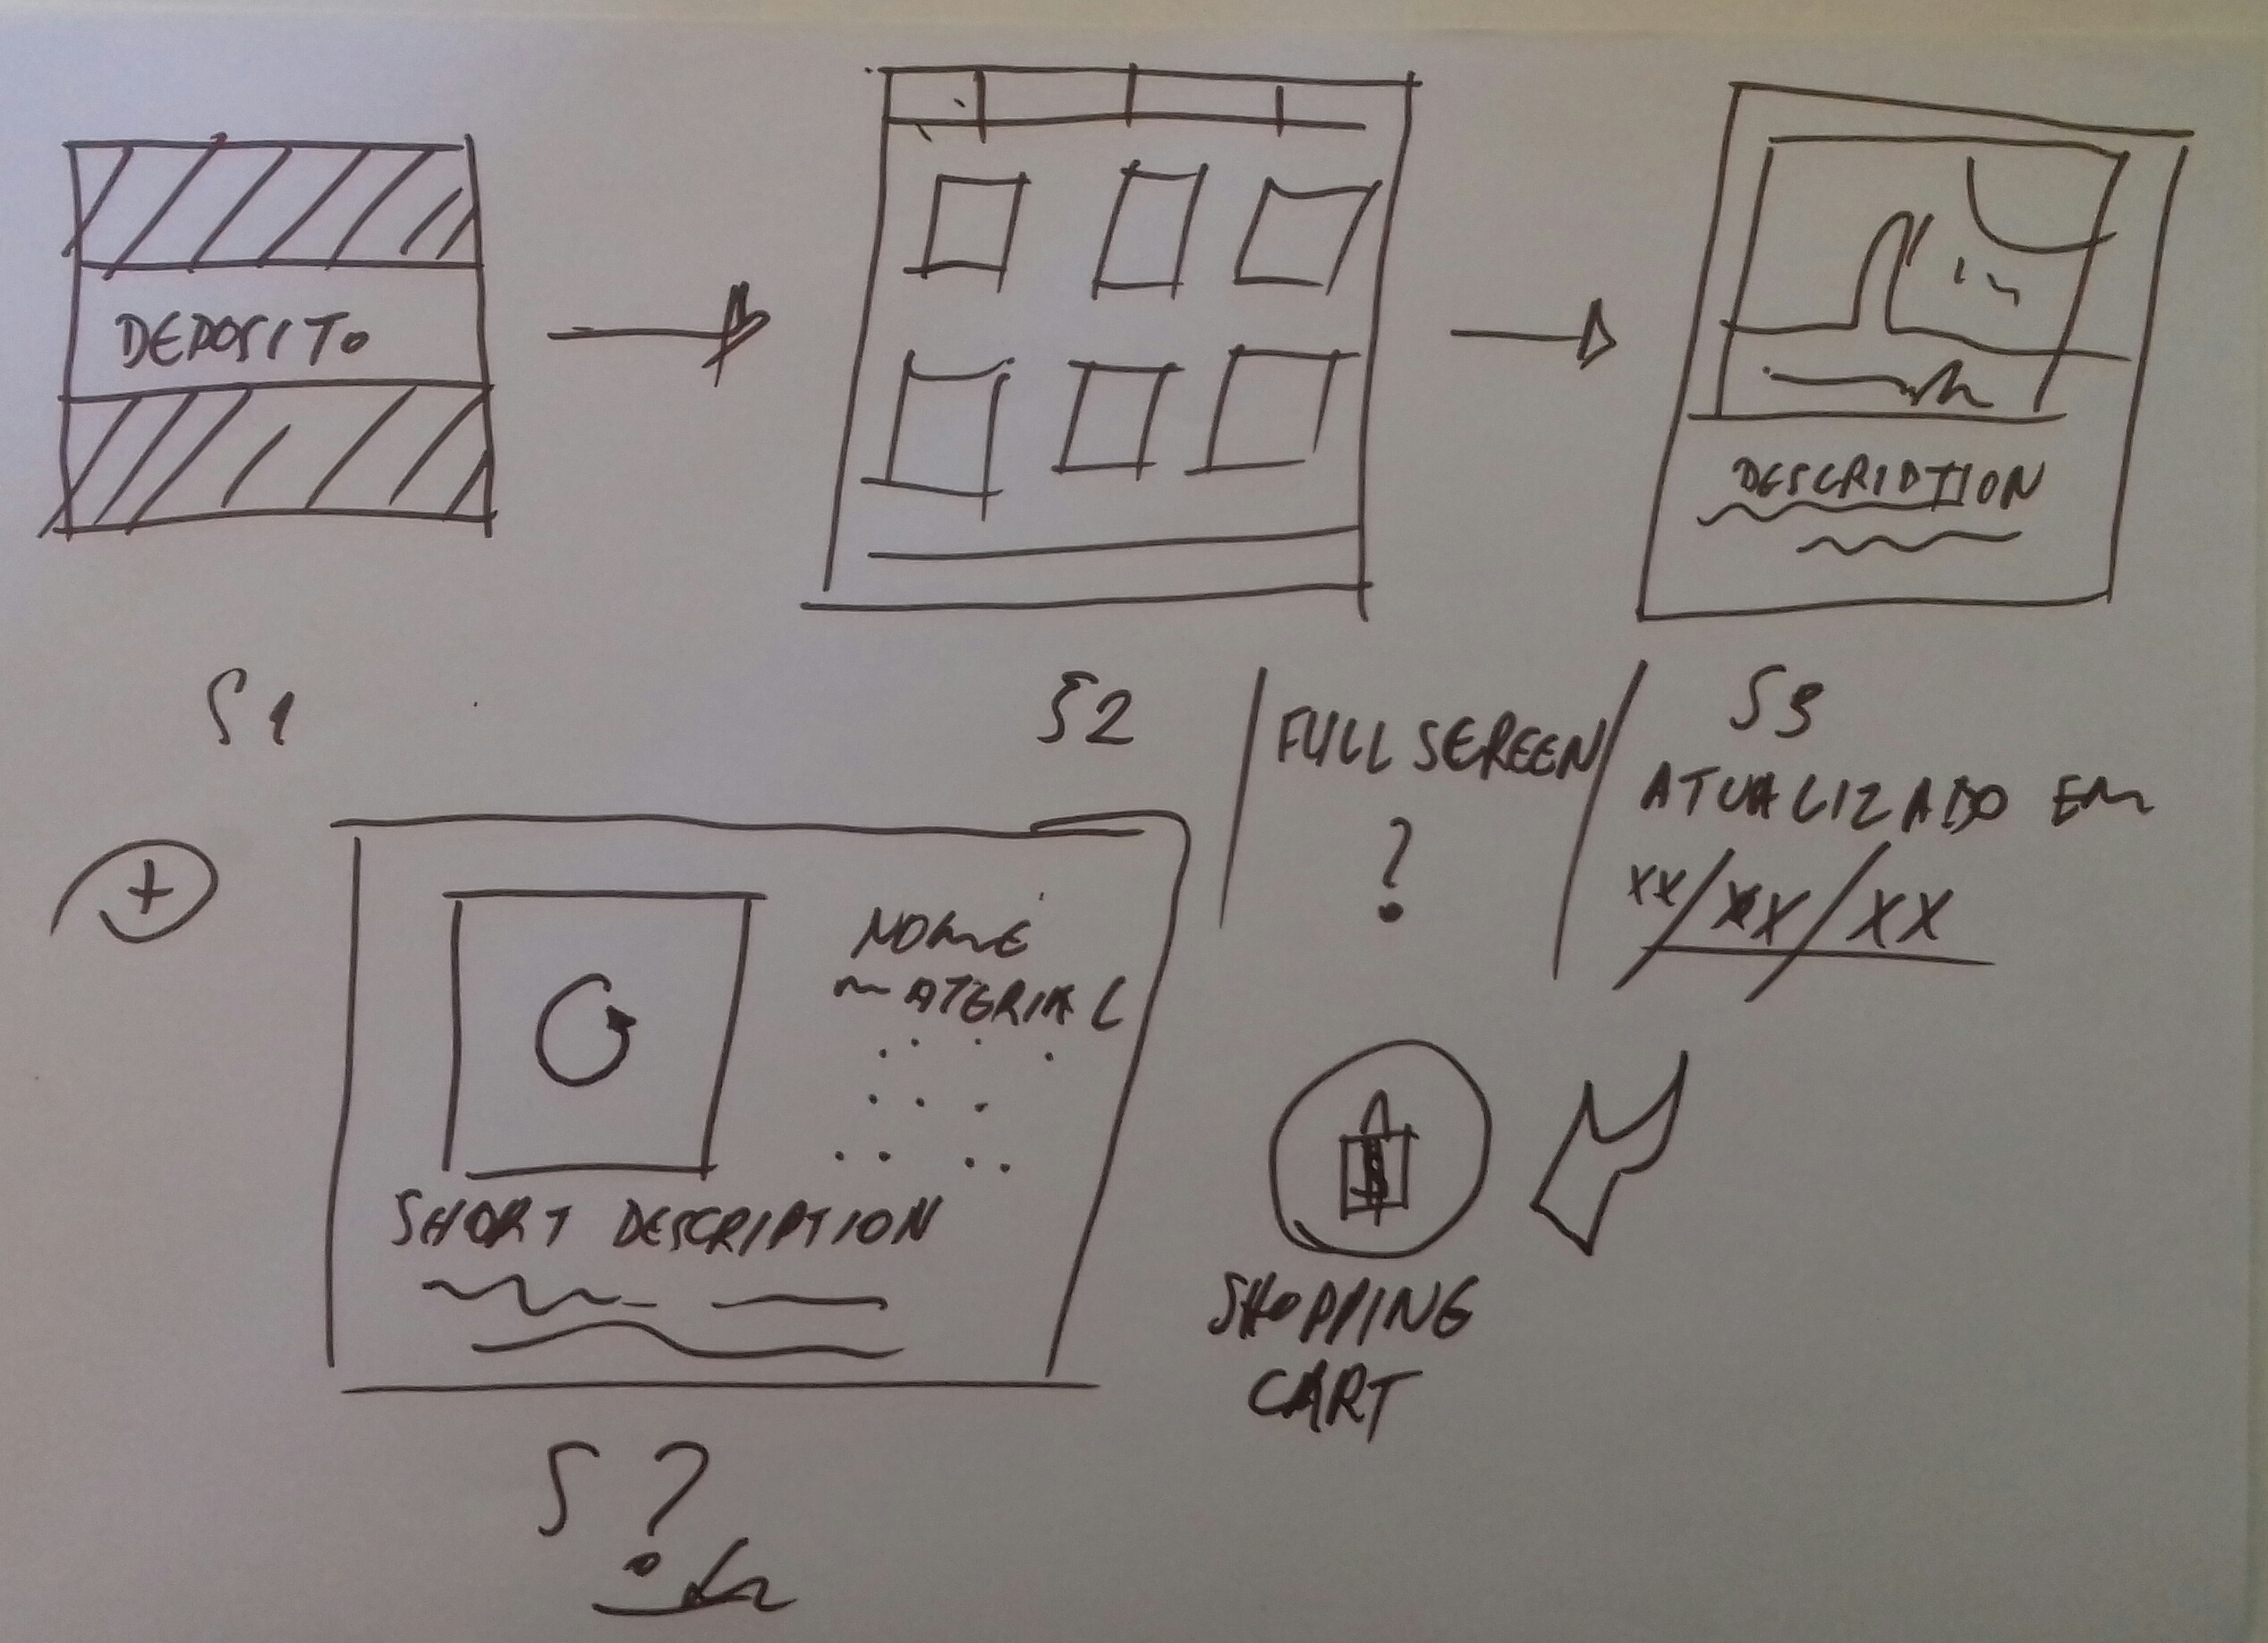 DEPOSITO
DESCRIPTION
S1
S2
FULL SEREEN
?
S3
ATUALIZADO EM
XX/XX/XX
+
NOME
MATERIAL
SHORT DESCRIPTION
$
SHOPPING
CART
S?